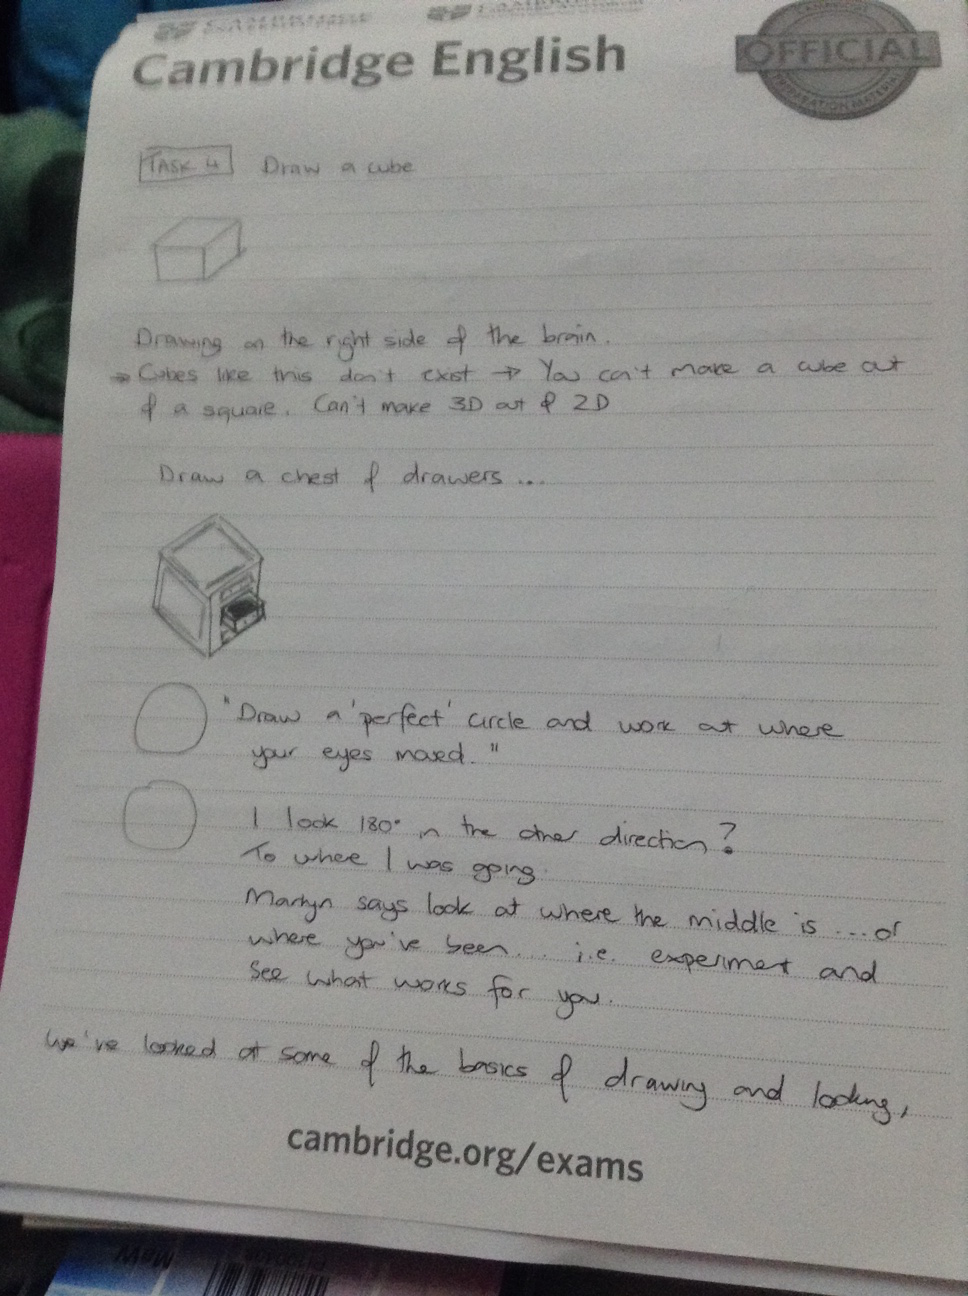 Cambridge English
OFFICIAL
PREPARATION MATERIAL
TASK 4 Draw a cube
Drawing on the right side of the brain.
⇒ Cubes like this don't exist → You can't make a cube out
of a square. Can't make 3D out of 2D
Draw a chest of drawers ...
"Draw a 'perfect' circle and work out where
your eyes moved."
I look 180° in the other direction?
To where I was going.
Martyn says look at where the middle is ... or
where you've been... i.e. experiment and
see what works for you.
We've looked at some of the basics of drawing and looking,
cambridge.org/exams